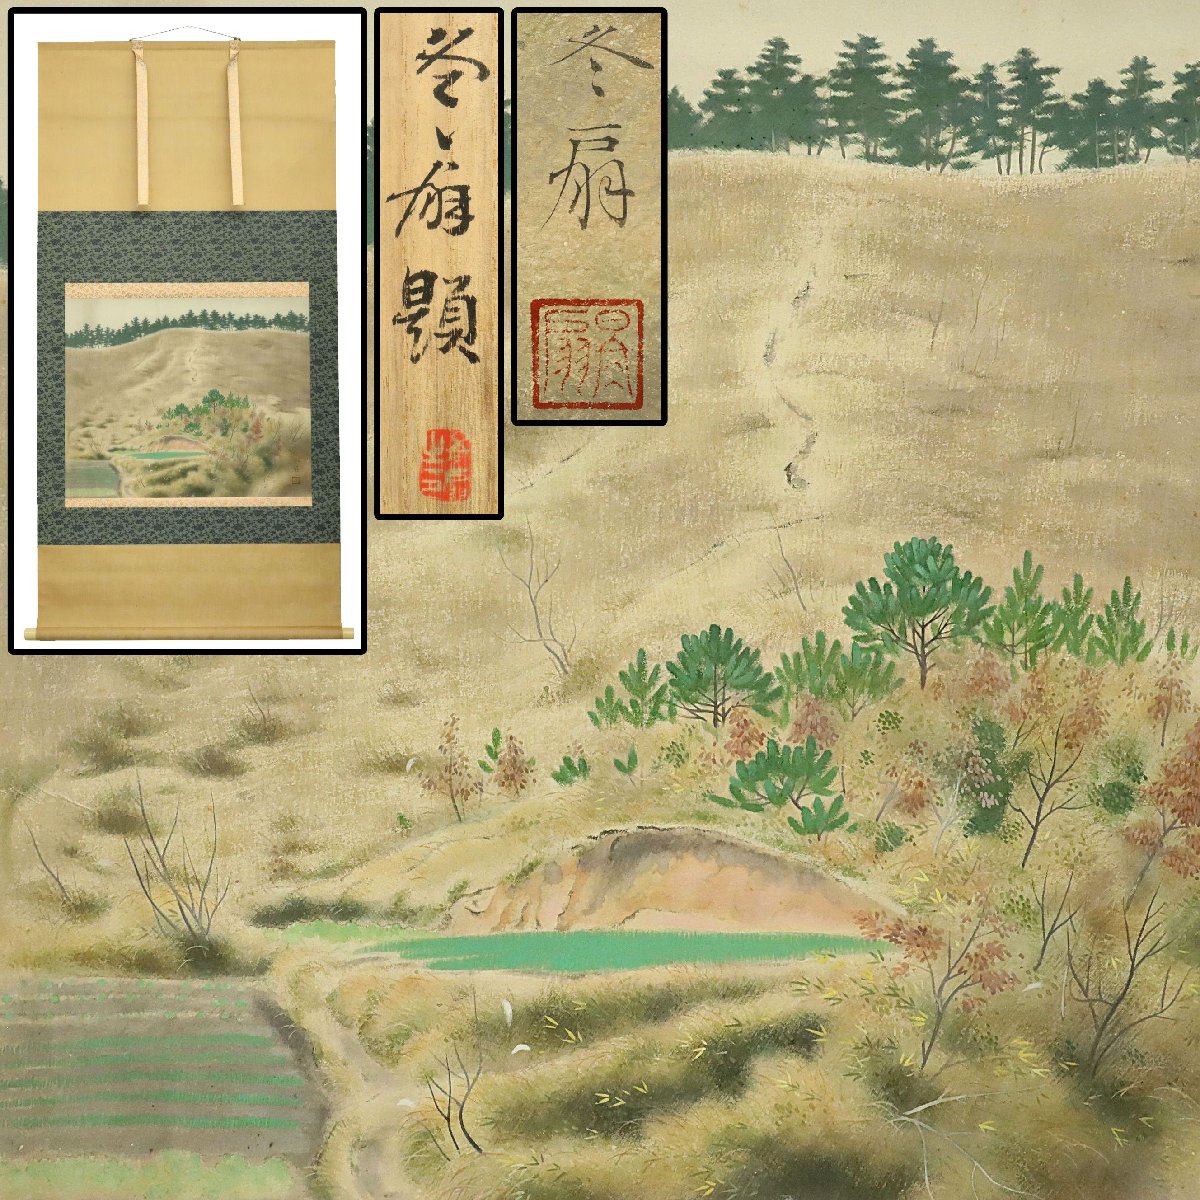 冬扇題
冬扇